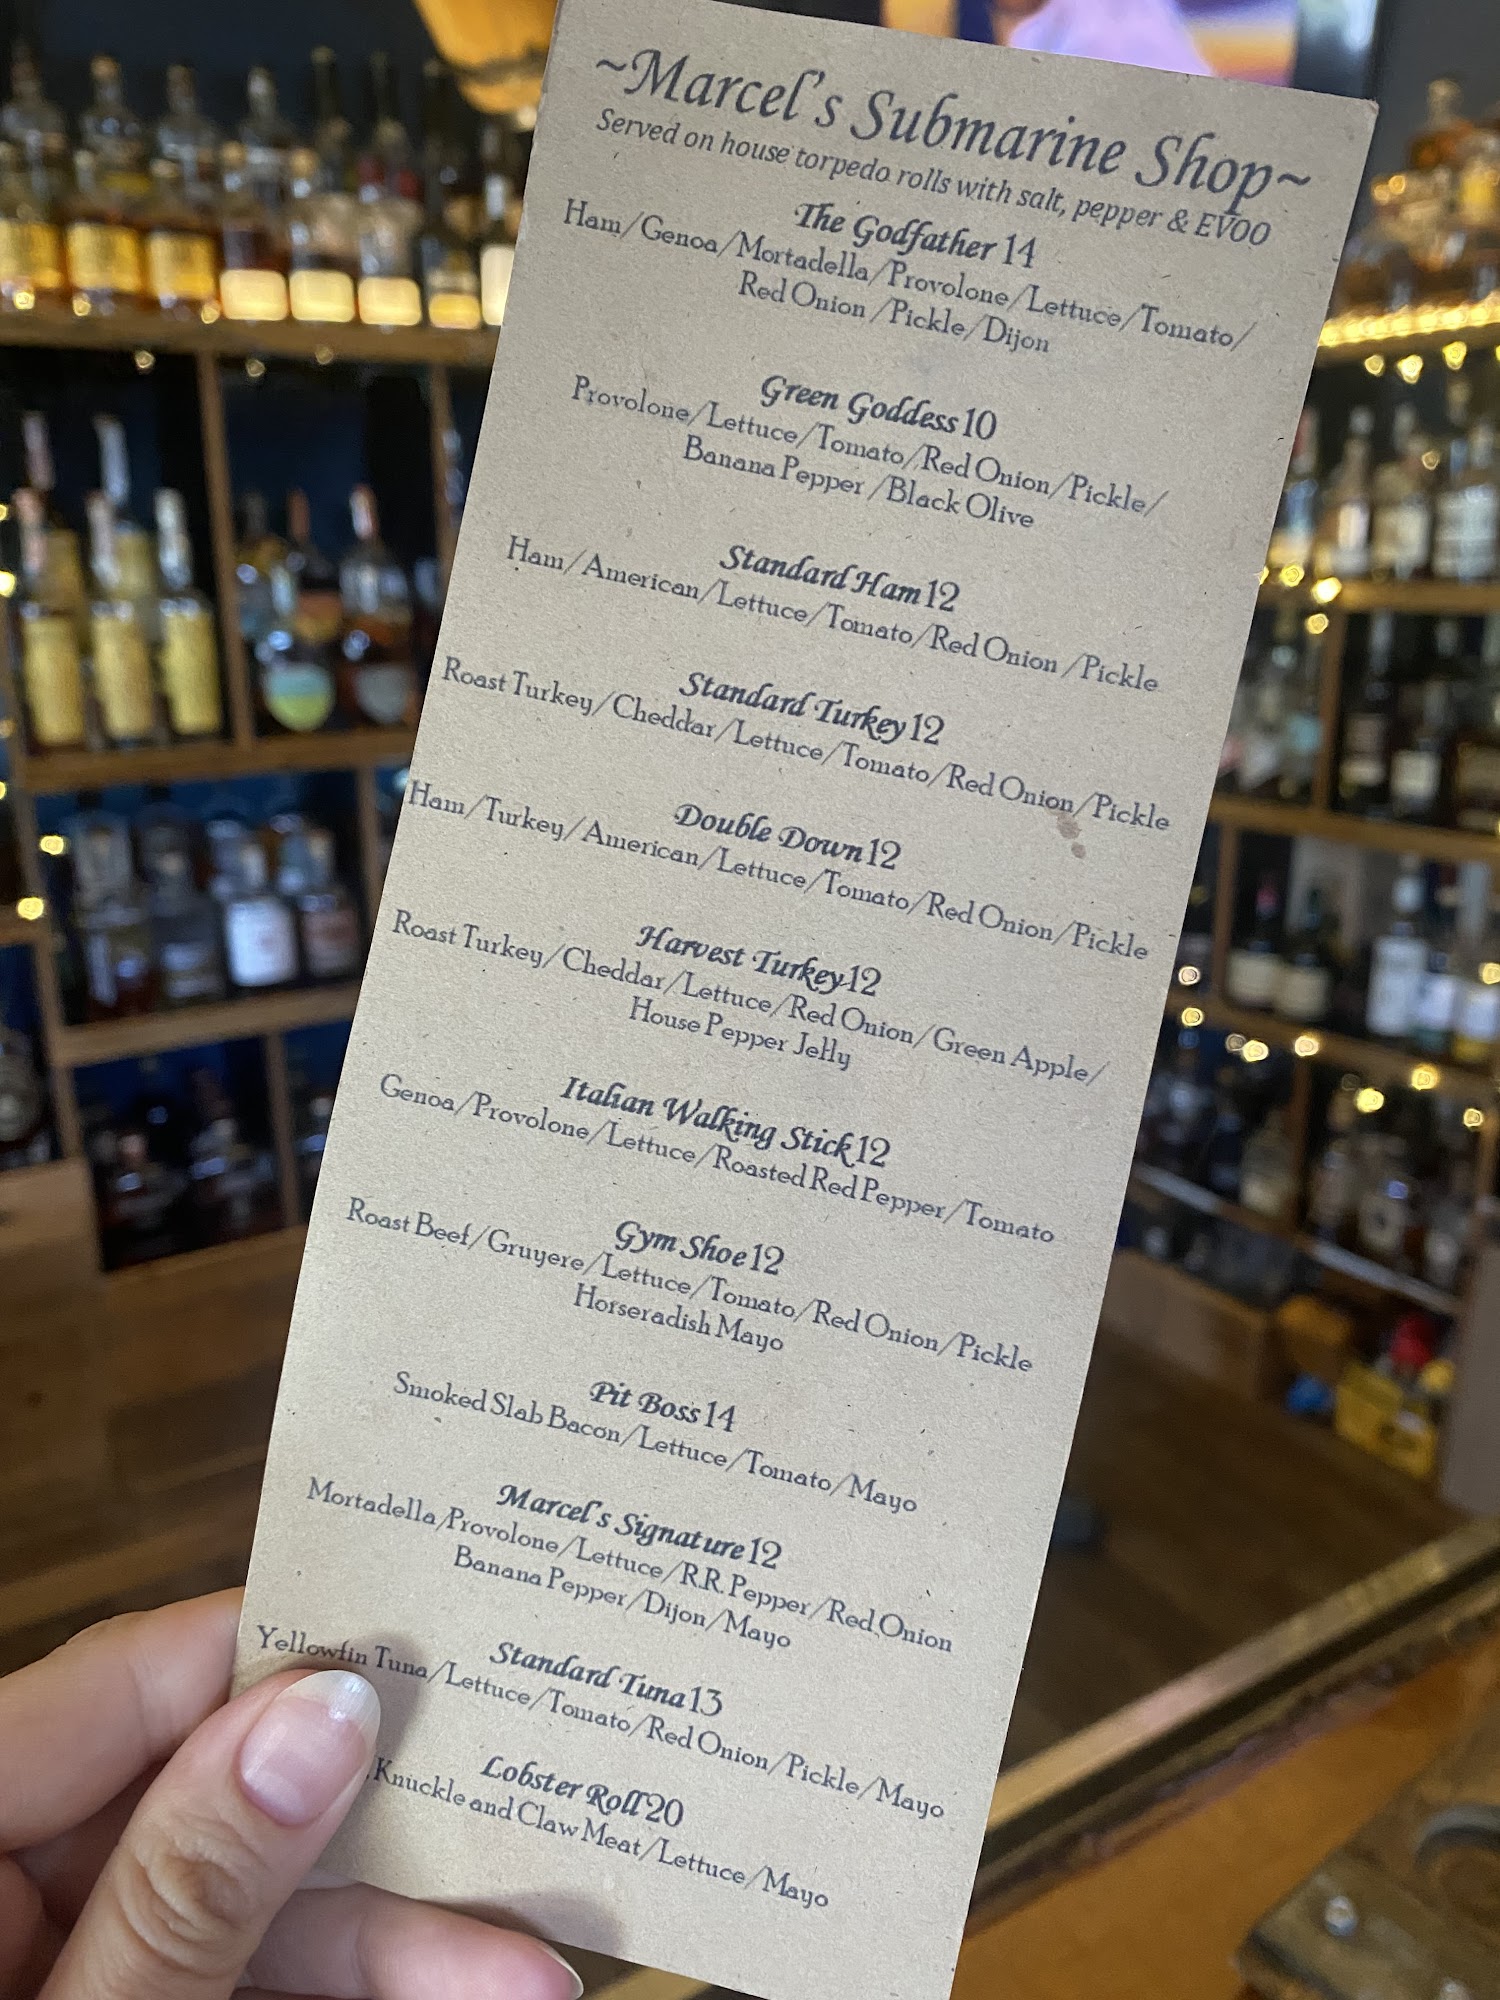 ~Marcel's Submarine Shop~
Served on house torpedo rolls with salt, pepper & EVOO
The Godfather 14
Ham/Genoa/Mortadella/Provolone/Lettuce/Tomato/
Red Onion/Pickle/Dijon
Green Goddess 10
Provolone/Lettuce/Tomato/Red Onion/Pickle/
Banana Pepper/Black Olive
Standard Ham 12
Ham/American/Lettuce/Tomato/Red Onion/Pickle
Standard Turkey 12
Roast Turkey/Cheddar/Lettuce/Tomato/Red Onion/Pickle
Double Down 12
Ham/Turkey/American/Lettuce/Tomato/Red Onion/Pickle
Harvest Turkey 12
Roast Turkey/Cheddar/Lettuce/Red Onion/Green Apple/
House Pepper Jelly
Italian Walking Stick 12
Genoa/Provolone/Lettuce/Roasted Red Pepper/Tomato
Gym Shoe 12
Roast Beef/Gruyere/Lettuce/Tomato/Red Onion/Pickle
Horseradish Mayo
Pit Boss 14
Smoked Slab Bacon/Lettuce/Tomato/Mayo
Marcel's Signature 12
Mortadella/Provolone/Lettuce/R.R. Pepper/Red Onion
Banana Pepper/Dijon/Mayo
Standard Tuna 13
Yellowfin Tuna/Lettuce/Tomato/Red Onion/Pickle/Mayo
Lobster Roll 20
Knuckle and Claw Meat/Lettuce/Mayo